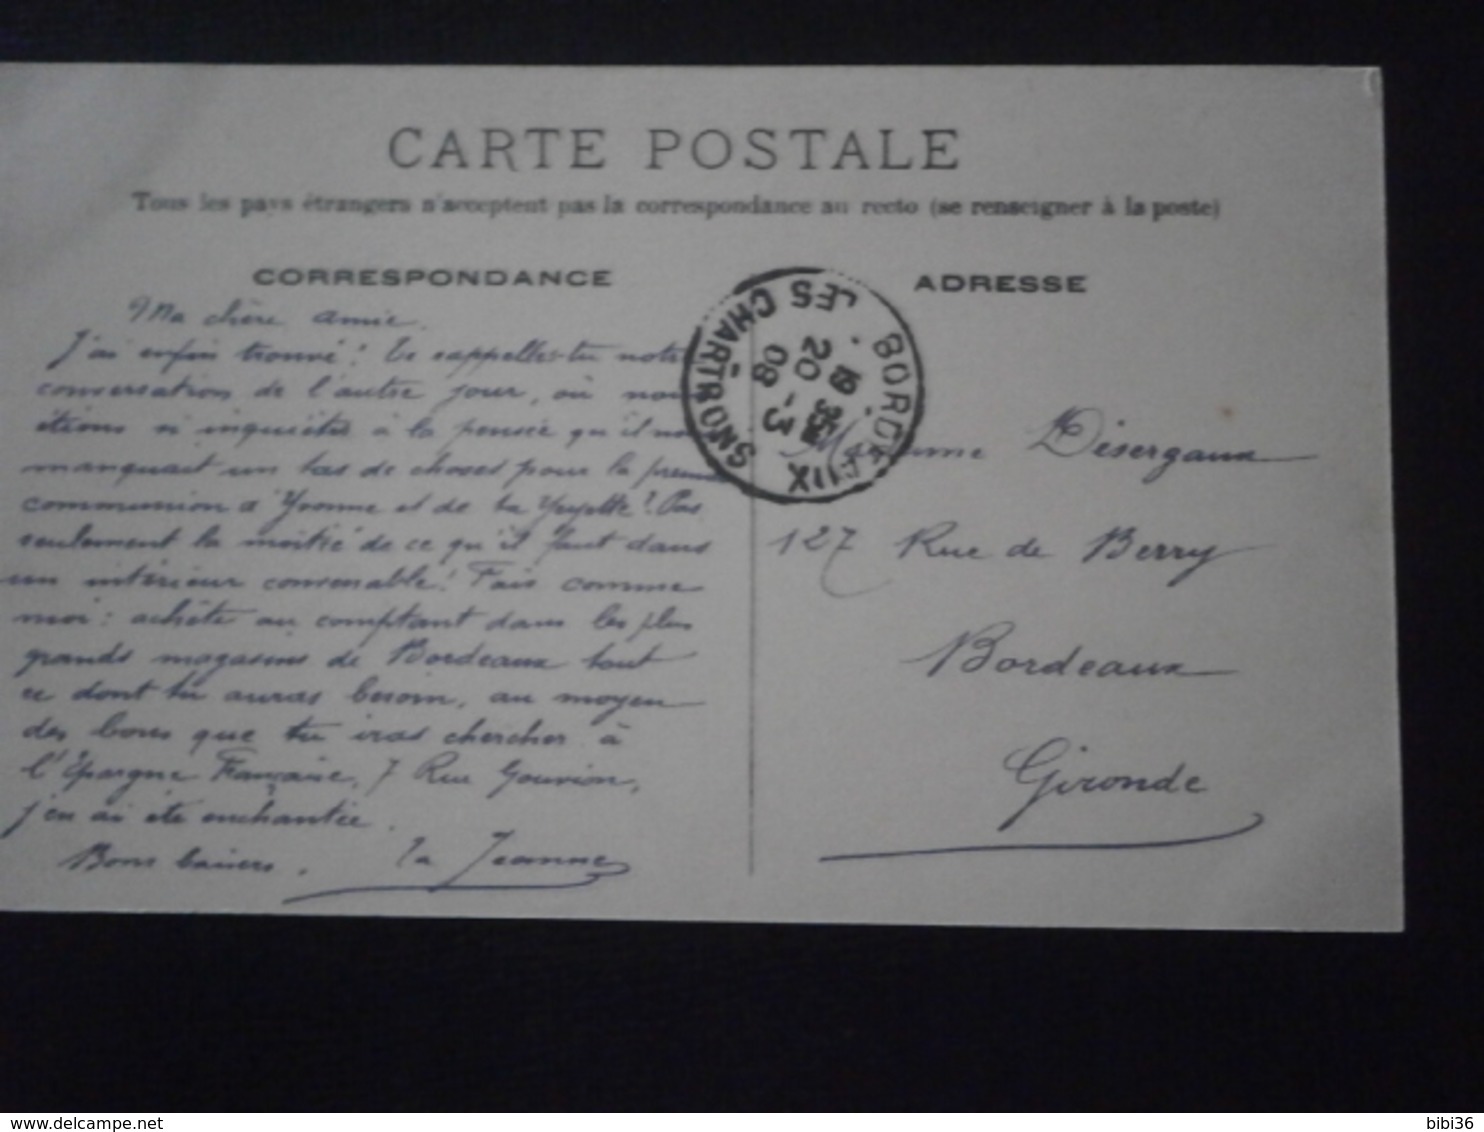 CARTE POSTALE
Tous les pays étrangers n'acceptent pas la correspondance au recto (se renseigner à la poste)
CORRESPONDANCE
Ma chère amie.
J'ai enfin trouvé! te rappelles-tu notre
conversation de l'autre jour, où nous
étions si inquiètes à la pensée qu'il nous
manquait un tas de choses pour la première
communion d'Yvonne et de ta Yeyette? Pas
seulement la moitié de ce qu'il faut dans
un intérieur convenable! Fais comme
moi: achète au comptant dans les plus
grands magasins de Bordeaux tout
ce dont tu auras besoin, au moyen
des bons que tu iras chercher à
l'Epargne Française, 7 Rue Gouvion,
j'en ai été enchantée.
Bons baisers. ta Jeanne
ADRESSE
BORDEAUX
LES CHARTRONS
20 -3
08
Madame Désergaux
127 Rue de Berry
Bordeaux
Gironde
bibi36